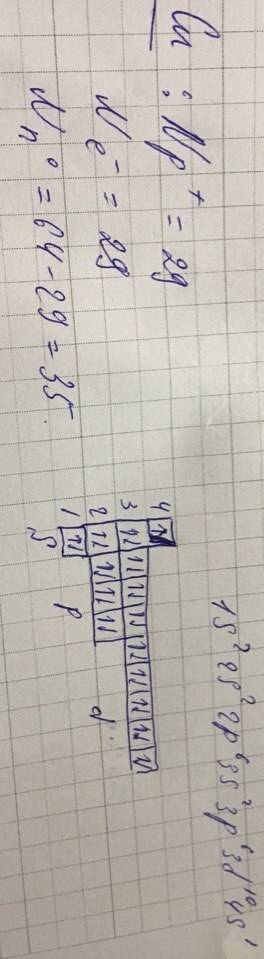 Cu : Np⁺ = 29
Ne⁻ = 29
Nn⁰ = 64 - 29 = 35
1s² 2s² 2p⁶ 3s² 3p⁶ 3d¹⁰ 4s¹
4
3
2
1
S
p
d